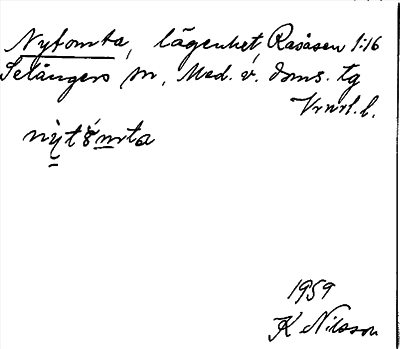 Nytomta, lägenhet, Raåsen 1:16
Selångers sn, Med. v. doms. tg
Vnrl. l.
nỳt
1959
K Nilsson